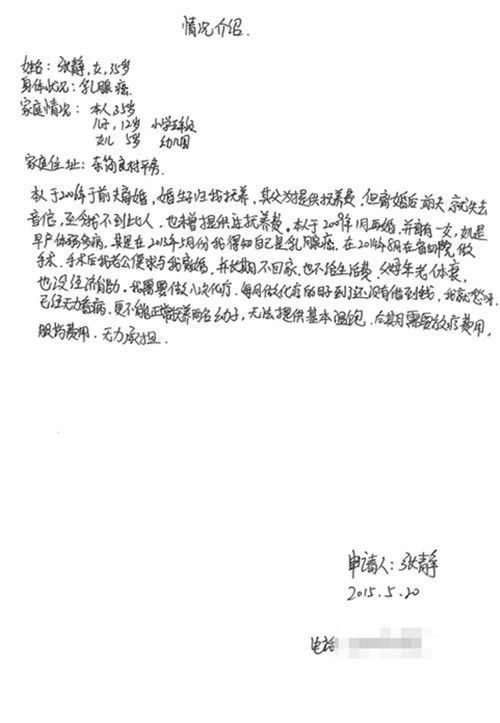 情况介绍.
姓名：张静，女，35岁
身体状况：乳腺癌.
家庭情况：本人35岁
儿子，12岁 小学五年级
女儿 5岁 幼儿园
家庭住址：东简良村平房.
本人于2006年于前夫离婚，婚生子归我抚养，其父为提供抚养费，但离婚后前夫就失去
音信，至今找不到此人，也未曾提供过抚养费。本人于2009年1月再婚，并育有一女，女儿是
早产体弱多病，只是在2013年5月份我得知自己是乳腺癌，在2014年8月在 医院做
手术，手术后我老公便求与我离婚，并长期不回家，也不给生活费，父母年老体衰，
也没经济能力。我需要做八次化疗，每月做化疗的日子到了还没有借到钱，我就愁呀.
已经无力看病，更不能正常抚养两名幼子，无法提供基本温饱.后期需要放疗费用，
服药费用，无力承担.
申请人：张静
2015.5.20
电话